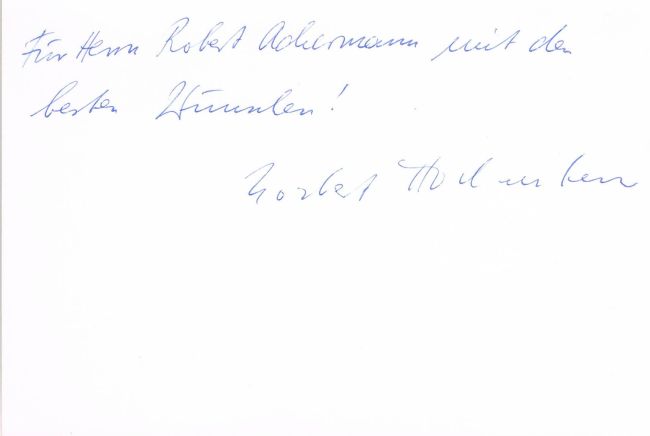 Für Herrn Robert Ackermann mit den
besten Wünschen!
Norbert